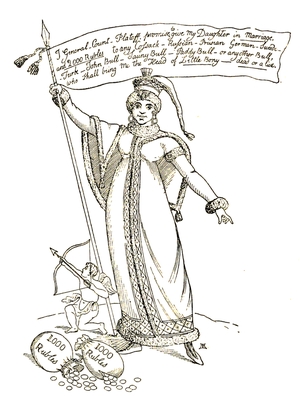 I General Count Platoff promise to give my Daughter in Marriage.
and 2000 Rubles to any Cossack - Russian - Prusian German - Swede -
Turk - John Bull - Sawny Bull - Paddy Bull - or any other Bull
who shall bring me the Head of Little Bony - dead or alive.
1000
Rubles
1000
Rubles